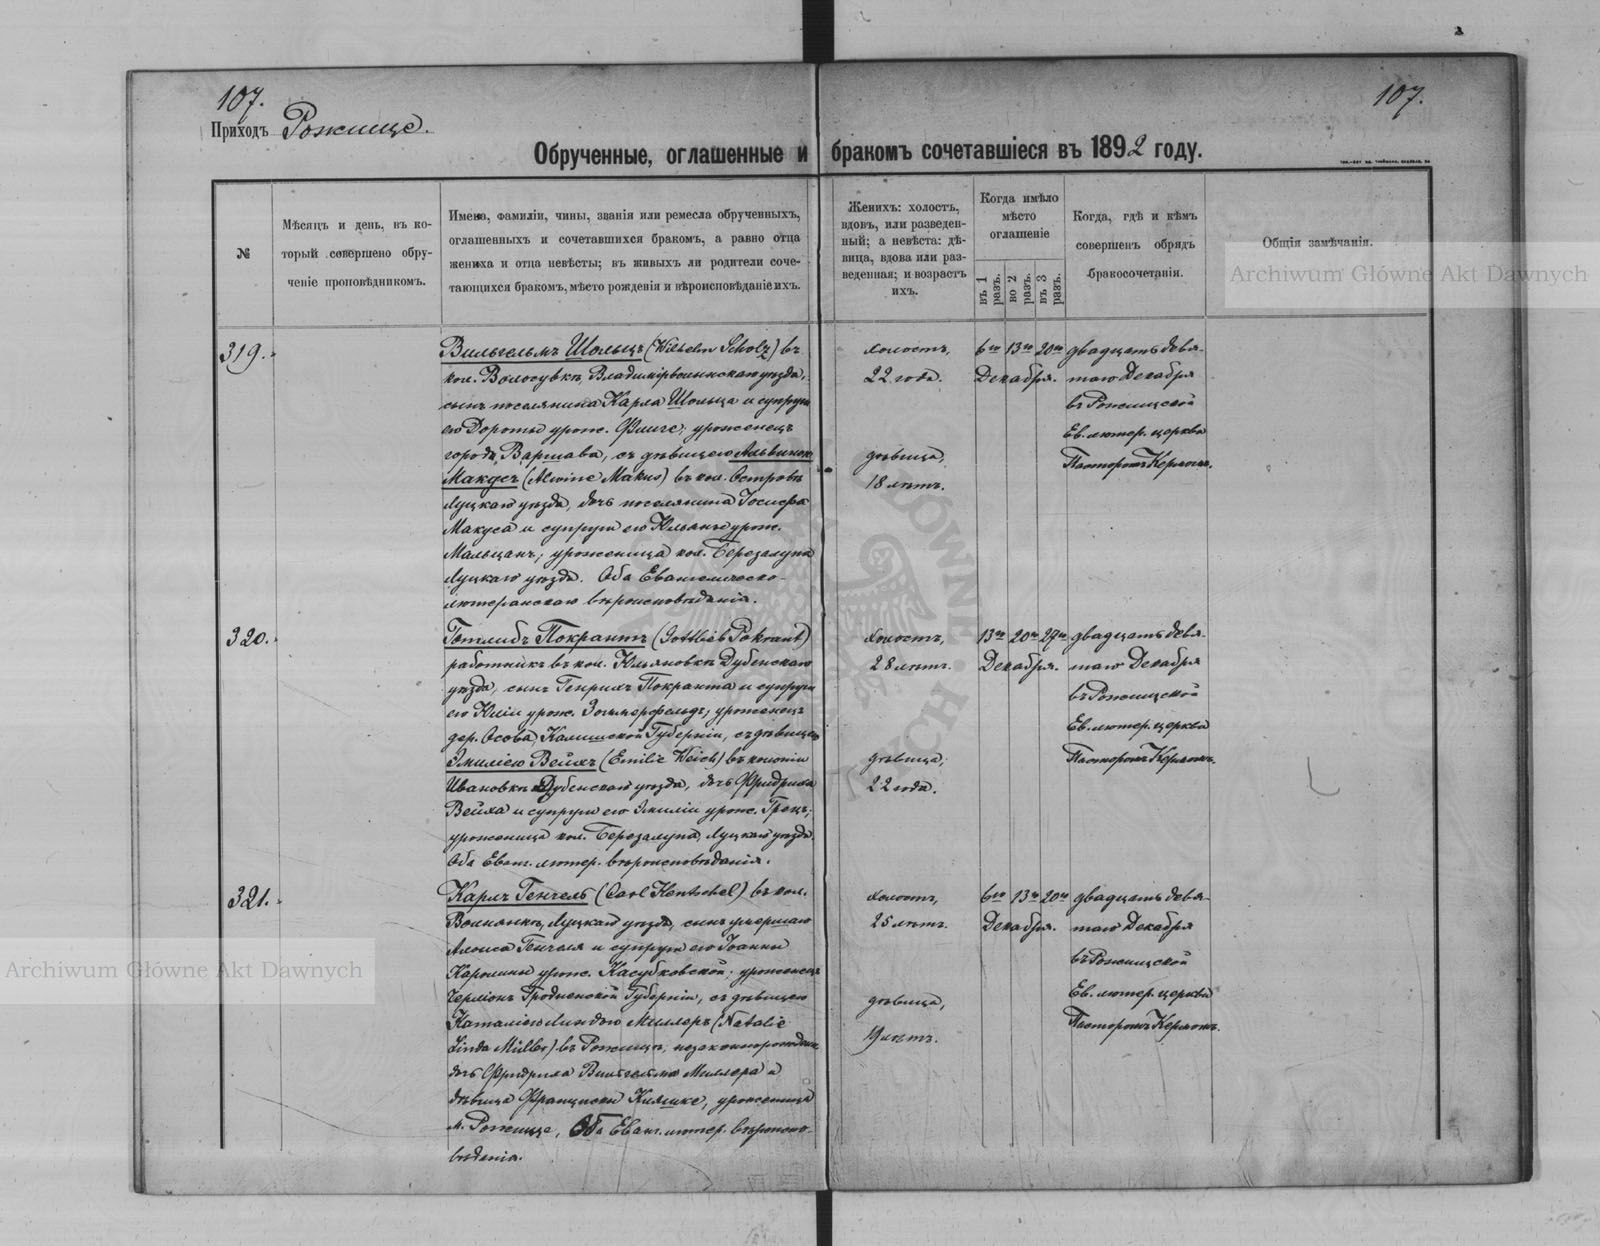 107.
107.
Приходъ Рожище.
Обрученные, оглашенные и бракомъ сочетавшіеся въ 1892 году.
№
Мѣсяцъ и день, въ ко-
торый совершено обру-
ченіе проповѣдникомъ.
Имена, фамиліи, чины, званія или ремесла обрученныхъ,
оглашенныхъ и сочетавшихся бракомъ, а равно отца
жениха и отца невѣсты; въ живыхъ ли родители соче-
тающихся бракомъ, мѣсто рожденія и вѣроисповѣданіе ихъ.
Женихъ: холостъ,
вдовъ, или разведен-
ный; а невѣста: дѣ-
вица, вдова или раз-
веденная; и возрастъ
ихъ.
Когда имѣло
мѣсто
оглашеніе
въ 1 разъ.
во 2 разъ.
въ 3 разъ.
Когда, гдѣ и кѣмъ
совершенъ обрядъ
бракосочетанія.
Общія замѣчанія.
Archiwum Główne Akt Dawnych
319.
Вильгельмъ Шольцъ (Wilhelm Scholz) въ
кол. Волосувкѣ, Владимірволынскаго уѣзда,
сынъ поселянина Карла Шольца и супруги
его Доротьи урож. Флиге; уроженецъ
города Варшава, съ дѣвицею Альвиною
Макусъ (Alwine Makus) въ кол. Островъ
Луцкаго уѣзда, дочь поселянина Іосифа
Макуса и супруги его Юльяны урож.
Мальцанъ; уроженица кол. Березалупа
Луцкаго уѣзда. Оба Евангелическо-
лютеранскаго вѣроисповѣданія.
холостъ,
22 года.
дѣвица,
18 лѣтъ.
6го 13го 20го
Декабря.
двадцать девя-
таго Декабря
въ Рожищской
Ев. лютер. церкви
Пасторомъ Кермомъ.
320.
Готлибъ Покрантъ (Gottlieb Pokrant)
работникъ въ кол. Юльяновкѣ Дубенскаго
уѣзда, сынъ Генриха Покранта и супруги
его Юліи урож. Зоммерфельдъ; уроженецъ
дер. Осова Калишской Губерніи, съ дѣвицею
Эмилією Вейхъ (Emilie Weich) въ колоніи
Ивановкѣ Дубенскаго уѣзда, дочь Фридриха
Вейха и супруги его Эмиліи урож. Гренъ;
уроженица кол. Березалупа, Луцкаго уѣзда.
Оба Еванг. лютер. вѣроисповѣданія.
холостъ,
28 лѣтъ.
дѣвица,
22 года.
13го 20го 27го
Декабря.
двадцать девя-
таго Декабря
въ Рожищской
Ев. лютер. церкви
Пасторомъ Кермомъ.
321.
Карлъ Генчель (Carl Hentschel) въ кол.
Волнянкѣ, Луцкаго уѣзда, сынъ умершаго
Алоиса Генчеля и супруги его Іоанны
Каролины урож. Касубковской; уроженецъ
Гродненской Губерніи, съ дѣвицею
Наталією Линдою Миллеръ (Natalie
Linda Müller) въ Рожищѣ, незаконнорожден.
дочь Фридриха Вильгельма Миллера и
дѣвица Франциски Климке, уроженица
м. Рожище, Оба Еванг. лютер. вѣроиспо-
вѣданія.
холостъ,
25 лѣтъ.
дѣвица,
19 лѣтъ.
6го 13го 20го
Декабря.
двадцать девя-
таго Декабря
въ Рожищской
Ев. лютер. церкви
Пасторомъ Кермомъ.
Archiwum Główne Akt Dawnych